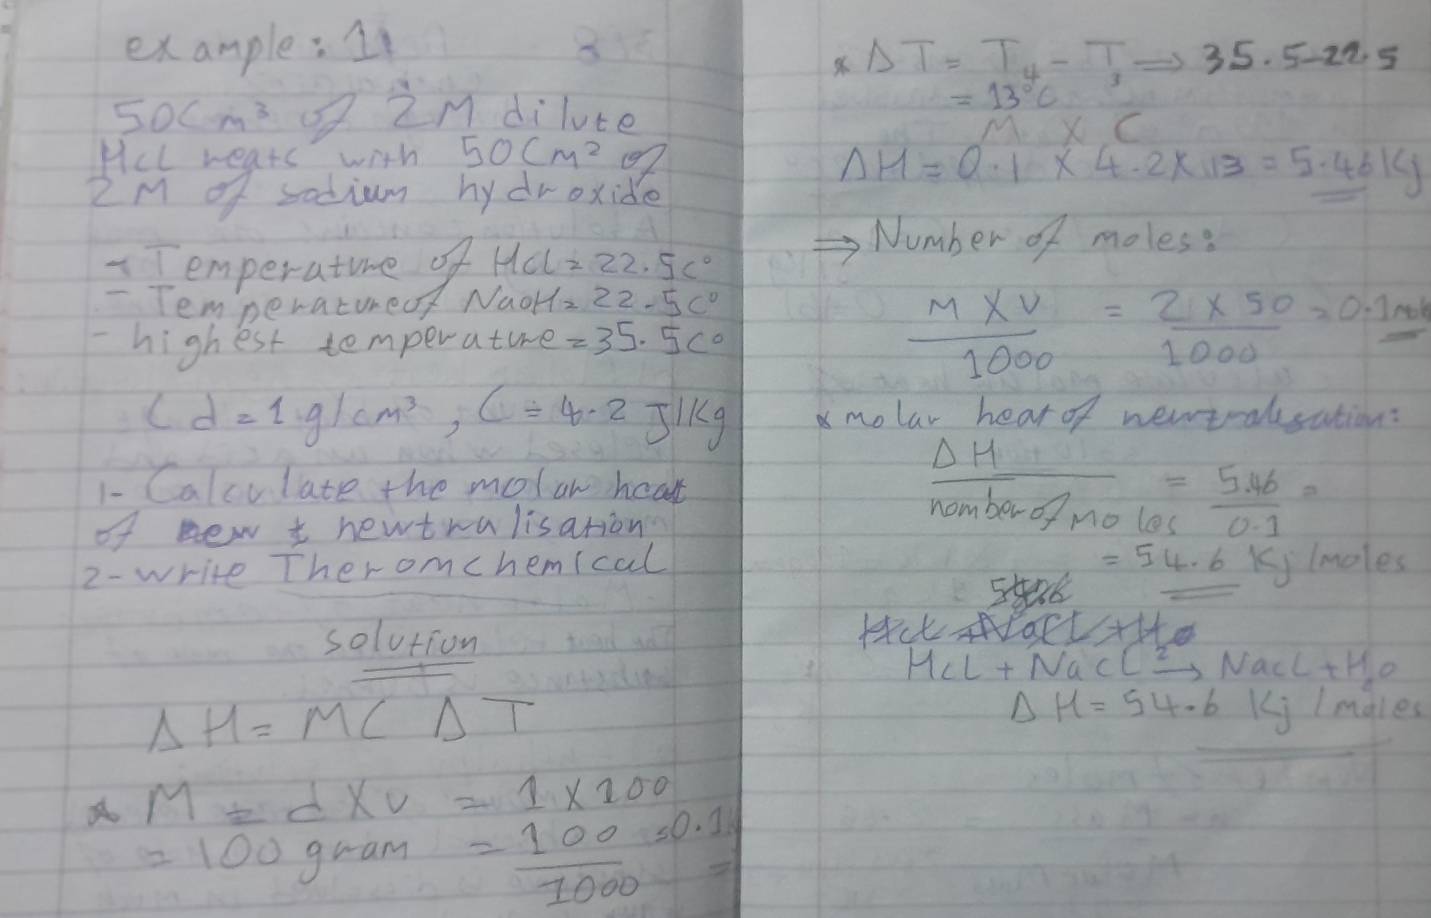 example: 1
50Cm³ of 2M dilute
Hcl reats with 50Cm² of
2M of sodium hydroxide
- Temperature of Hcl = 22.5c°
- Temperature of NaoH = 22.5c°
- highest temperature = 35.5c°
( d = 1 g/cm³ , C = 4.2 J/Kg
1- Calculate the molar heat
of newtralisation
2- write Theromchemical
solution
ΔH = MC ΔT
* M = d X v = 1 X 100
= 100 gram = 100/1000 = 0.1
* ΔT = T₄ - T₃ → 35.5-22.5
= 13°C
M X C
ΔH = 0.1 X 4.2 X 13 = 5.46 Kj
⇒ Number of moles:
M X V / 1000 = 2 X 50 / 1000 = 0.1 mol
* molar heat of newtralisation:
ΔH / nomber of moles = 5.46 / 0.1 =
= 54.6 Kj /moles
HCL + NaCL → NaCL + H₂o
ΔH = 54.6 Kj /moles